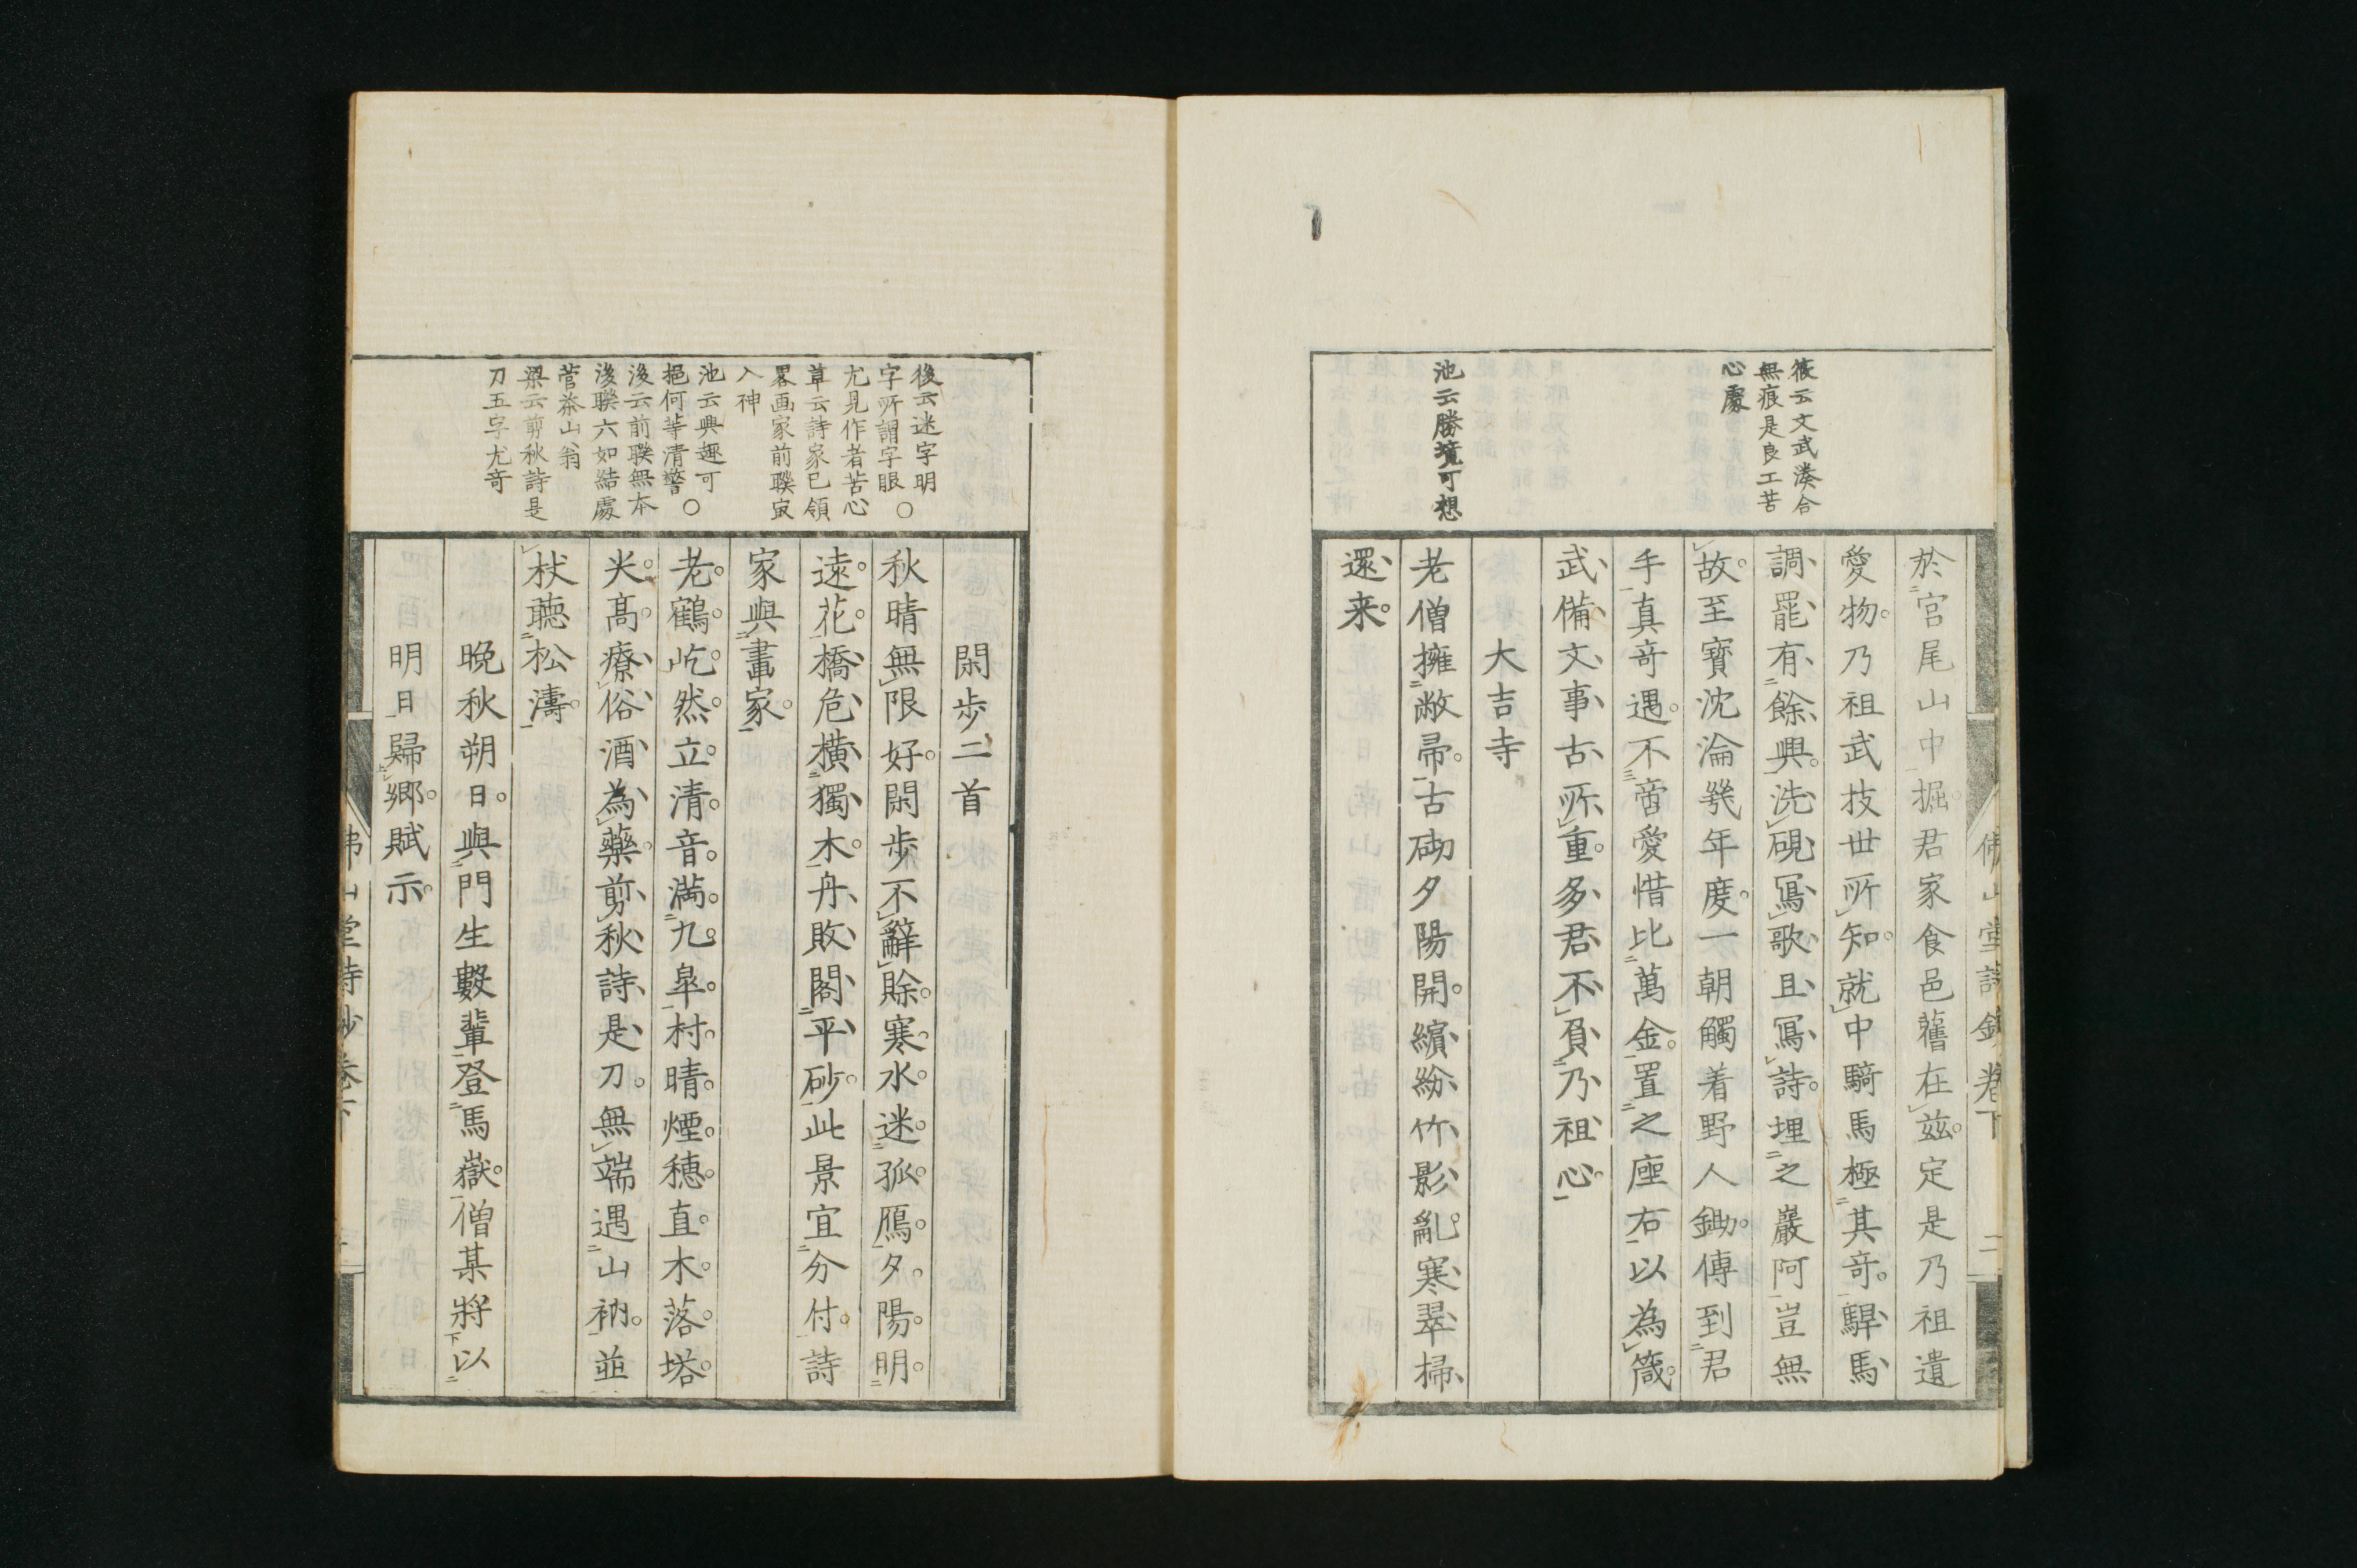 筱云文武湊合
無痕是良工苦
心處
池云勝境可想
於宮尾山中掘君家食邑舊在茲定是乃祖遺
愛物乃祖武技世所知就中騎馬極其奇驛馬
調罷有餘興洗硯寫歌且寫詩埋之巖阿豈無
故至寶沈淪幾年度一朝觸着野人鋤傳到君
手真奇遇不啻愛惜比萬金置之座右以為箴
武備文事古所重多君不負乃祖心
大吉寺
老僧擁敝帚古砌夕陽開繽紛竹影亂寒翠掃
還来
後云迷字明
字所謂字眼〇
尤見作者苦心
草云詩家已領
畧画家前聯㝡
入神
池云興趣可
挹何等清警〇
後云前聯無本
後聯六如結處
菅茶山翁
梁云剪秋詩是
刀五字尤奇
閑歩二首
秋晴無限好閑歩不辭賖寒水迷孤鴈夕陽明
遠花橋危横獨木舟敗閣平砂此景宜分付詩
家與畫家
老鶴屹然立清音満九皐村晴煙穗直木落塔
尖高療俗酒為藥剪秋詩是刀無端遇山衲並
杖聴松濤
晚秋朔日與門生數輩登馬嶽僧某將以
明日歸鄉賦示